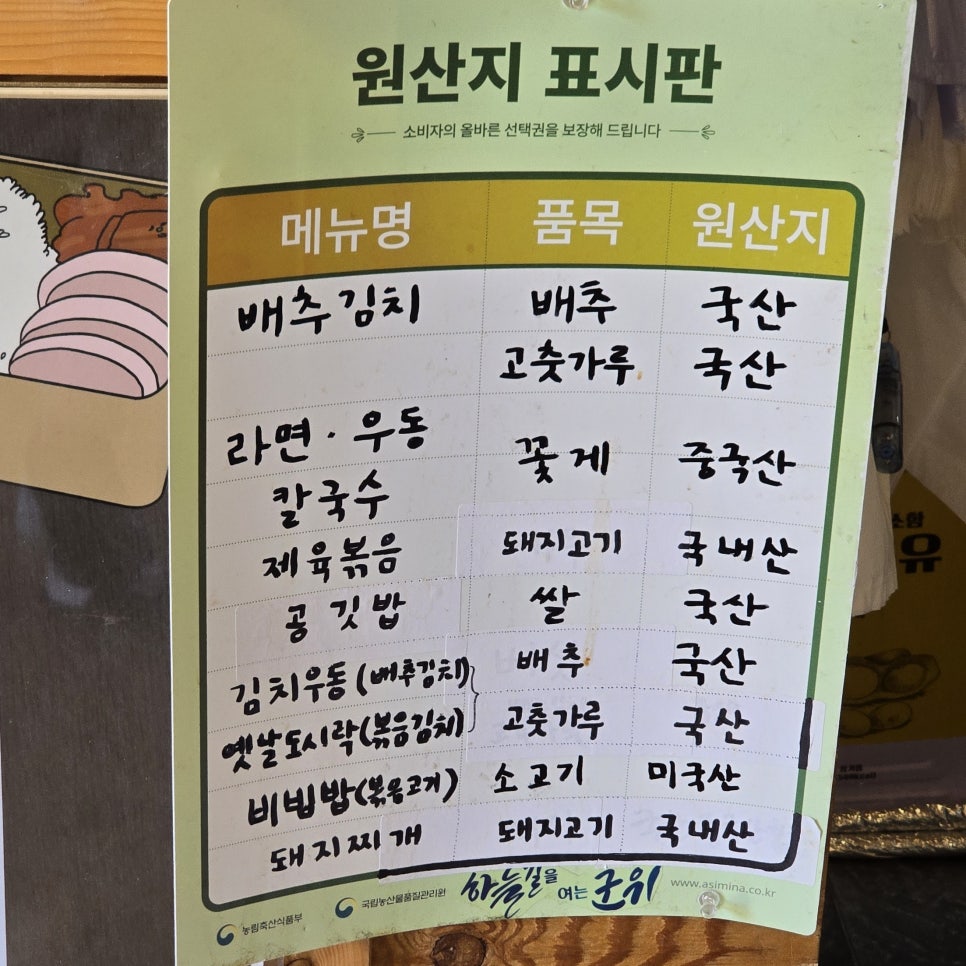 원산지 표시판
소비자의 올바른 선택권을 보장해 드립니다
메뉴명 품목 원산지
배추김치 배추 국산
고춧가루 국산
라면·우동
칼국수
꽃게 중국산
제육볶음 돼지고기 국내산
공깃밥 쌀 국산
김치우동(배추김치) 배추 국산
옛날도시락(볶음김치) 고춧가루 국산
비빔밥(볶음고기) 소고기 미국산
돼지찌개 돼지고기 국내산
농림축산식품부 국립농산물품질관리원 하늘길을 여는 군위 www.asimina.co.kr
유